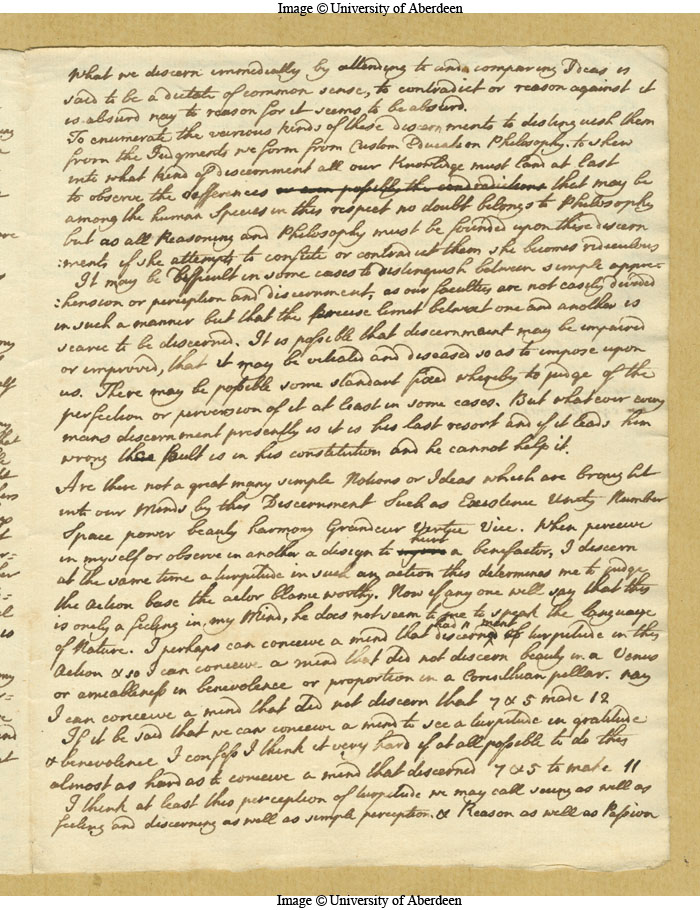 Image © University of Aberdeen
What we discern immediatly by attending to and comparing Ideas is
said to be a dictate of common sense, to contradict or reason against it
is absurd nay to reason for it seems to be absurd.
To enumerate the various kinds of these discernments to distinguish them
from the Judgments we form from Custom Education Philosophy. to shew
into what kind of discernment all our Knowledge must land at last
to observe the differences or even possibly the contradictions that may be
among the human Species in this respect no doubt belongs to Philosophy
but as all Reasoning and Philosophy must be founded upon these discern
:ments if she attempts to confute or contradict them she becomes ridiculous
It may be Difficult in some cases to distinguish between simple appre-
:hension or perception and discernment, as our faculties are not easily divided
in such a manner but that the precise limit betwixt one and another is
scarce to be discerned. It is possible that discernment may be impaired
or improved, that it may be vitiated and diseased so as to impose upon
us. There may be possible some standart fixed whereby to judge of the
perfection or perversion of it at least in some cases. But whatever every
mans discernment presently is it is his last resort and if it leads him
wrong the fault is in his constitution and he cannot help it.
Are there not a great many simple Notions or Ideas which are brought
into our Minds by this Discernment Such as Existence Unity Number
Space power beauty harmony Grandeur Virtue Vice. When perceive
in myself or observe in another a design to hurt a benefactor, I discern
at the same time a turpitude in such an action this determines me to judge
the action base the actor blame worthy. Now if any one will say that this
is onely a feeling in my Mind, he does not seem to me to speak the language
of Nature. I perhaps can conceive a mind that had n discernment of turpitude in this
Action & so I can conceive a mind that did not discern beauty in a Venus
or amiableness in benevolence or proportion in a Corinthian pillar. nay
I can conceive a mind that did not discern that 7 & 5 made 12
If it be said that we can conceive a mind to see a turpitude in gratitude
& benevolence I confess I think it very hard if at all possible to do this
almost as hard as to conceive a mind that discerned 7 & 5 to make 11
I think at least this perception of turpitude we may call seeing as well as
feeling and discerning as well as simple perception. & Reason as well as Passion
Image © University of Aberdeen